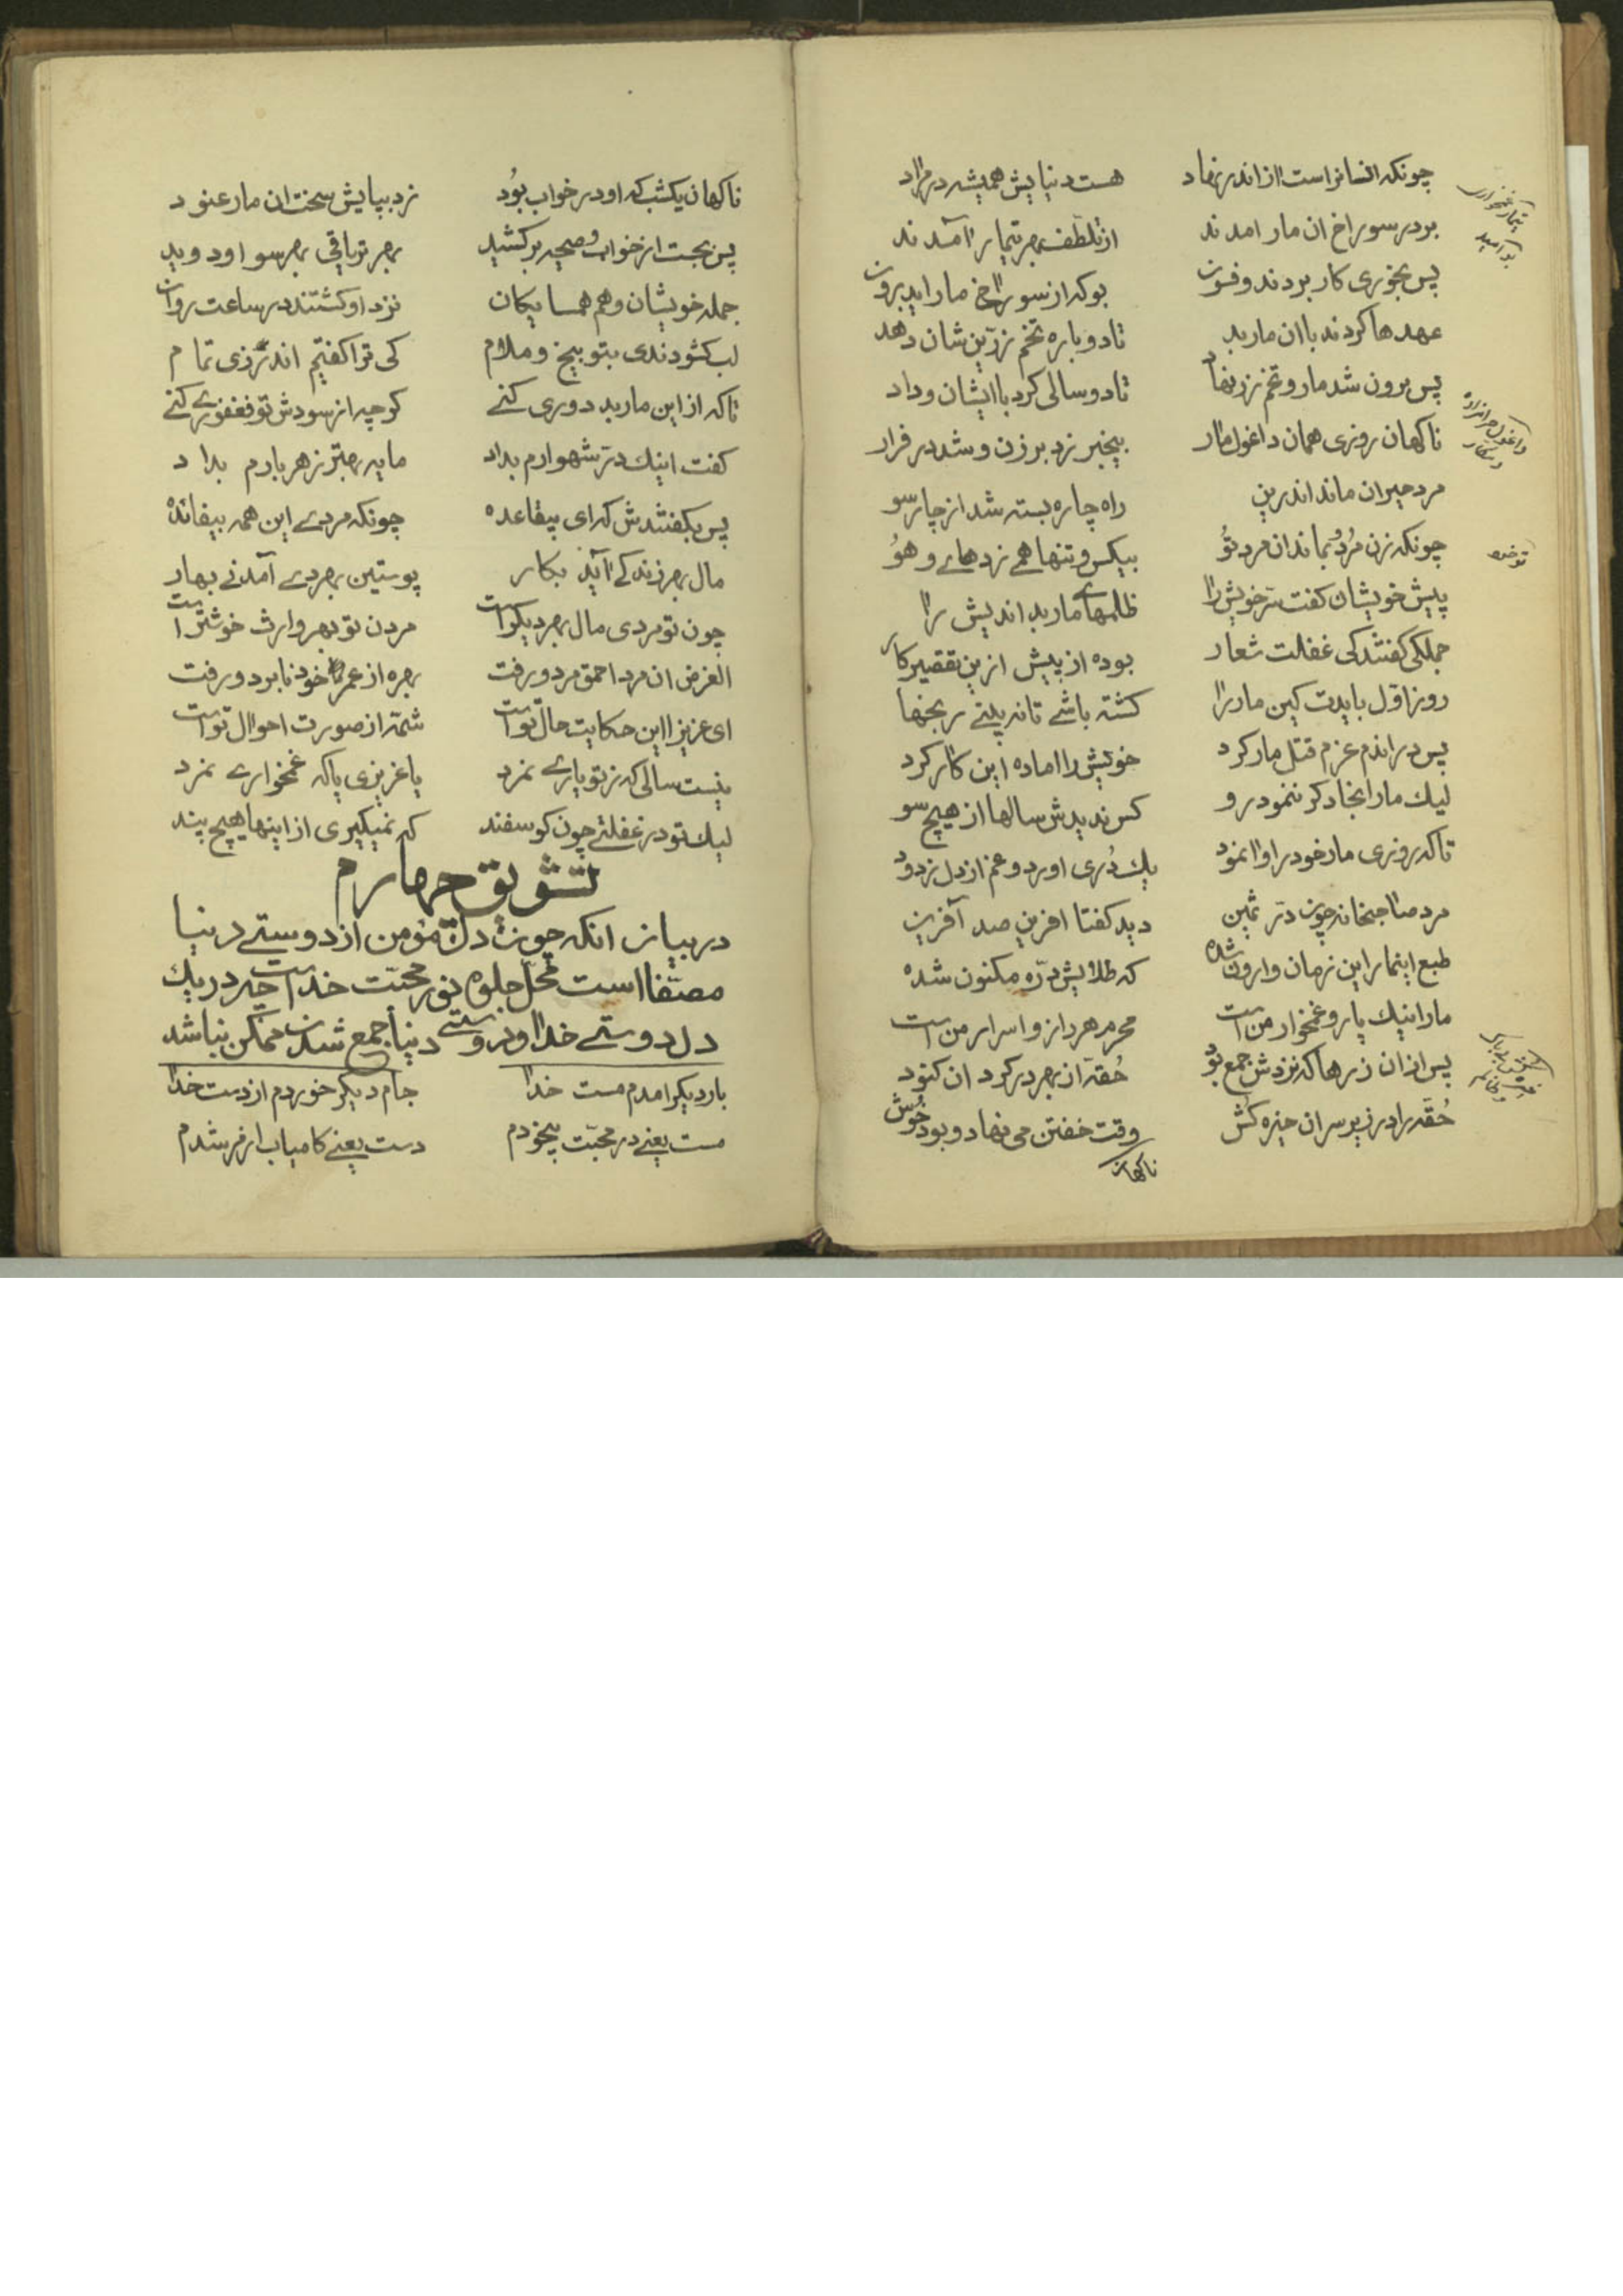 چونکه انسانراست از اندر نهاد هست دنیایش همیشه در مراد
بر در سوراخ ان مار امدند از تلطّف بهر تیمار آمدند
پس بخوری کار بردند و فسون بو که از سوراخ مار اید برون
عهدها کردند با ان مار بد تا دوباره تخم زرّین شان دهد
پس برون شد مار و تخم زر نهاد تا دو سالی کرد با ایشان وداد
ناکهان روزی همان داغول مار بیخبر زد بر زن و شد در فرار
مرد حیران ماند اندرین راه چاره بسته شد از چارسو
چونکه زن مُرد و بماند ان مرد تُو بیکس و تنها همے زد هاے و هوُ
پیش خویشان کفت سرّ خویش را ظلمهاے مار بد اندیش را
جملکی کفتند کی غفلت شعار بوده از پیش از این تقصیر کار
روز اوّل بایدت کین مار را کشته باشے تا نه بینے رنجها
پس در اندم عزم قتل مار کرد خویش را اماده این کار کرد
لیك مار انجا دکر ننمود رو کس ندیدش سالها از هیچ سو
تا که روزی مار خود را وانمود یك دُری اورد و غم از دل زدود
مرد صاحبخانه چون درّ ثمین دید کفتا افرین صد آفرین
طبع اینمار این زمان وارون شده که طلایش درّه مکنون شده
مار اینیك یار و غمخوار من است محرم هر راز و اسرار من است
پس از ان زرها که نزدش جمع بود حُقّهٔ از بهر در کرد ان کنود
حُقّه را در زیر سر ان خیره کش وقت خفتن می نهاد و بود خُوش
ناکهان
تیمار غمخواری
بو امید
داغول حرامزاده و مکار
ناکهان یکشب که او در خواب بُود زد بپایش سخت ان مار عنود
پس بجست از خواب و صیحه برکشید بهر تریاقی بهر سو او دوید
جمله خویشان و هم همسایکان نزد او کشتند در ساعت روان
لب کشودندی بتوبیخ و ملام کی ترا کفتیم اندرزی تمام
تا که از این مار بد دوری کنے کرچه از سودش تو فغفوری کنے
کفت اینك درّ شهوارم بداد مایه بهتر ز هر بارم بداد
پس بکفتندش که ای بیقاعده چونکه مردے این همه بیفائده
مال بهر زنده کے آید بکار پوستین بهر دے آمد نے بهار
چون تو مردی مال بهر دیکر است مردن تو بهر وارث خوشتر است
الغرض ان مرد احمق مرد و رفت بهره از عمر خود نابرد و رفت
ای عزیز ا این حکایت حال تو است شمّه از صورت احوال تو است
نیست سالی که ز تو یارے نمرد یا عزیزی یا که غمخوارے نمرد
لیك تو در غفلتے چون کوسفند که نمیکیری از اینها هیچ پند
تشویق چهارم
در بیان انکه چون دل مؤمن از دوستے دنیا
مصفّا است محلّ جلوه نور محبّت خدا است چه در یك
دل دوستے خدا و دوستے دنیا جمع شدن ممکن نباشد
بار دیکر امدم مست خدا جام دیکر خوردم از دست خدا
مست یعنے در محبّت بیخودم دست یعنے کامیاب از فر شدم